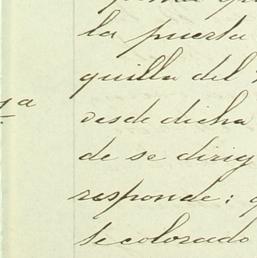 la puerta
quilla del
desde dicha
de se dirig
responde:
se colorado